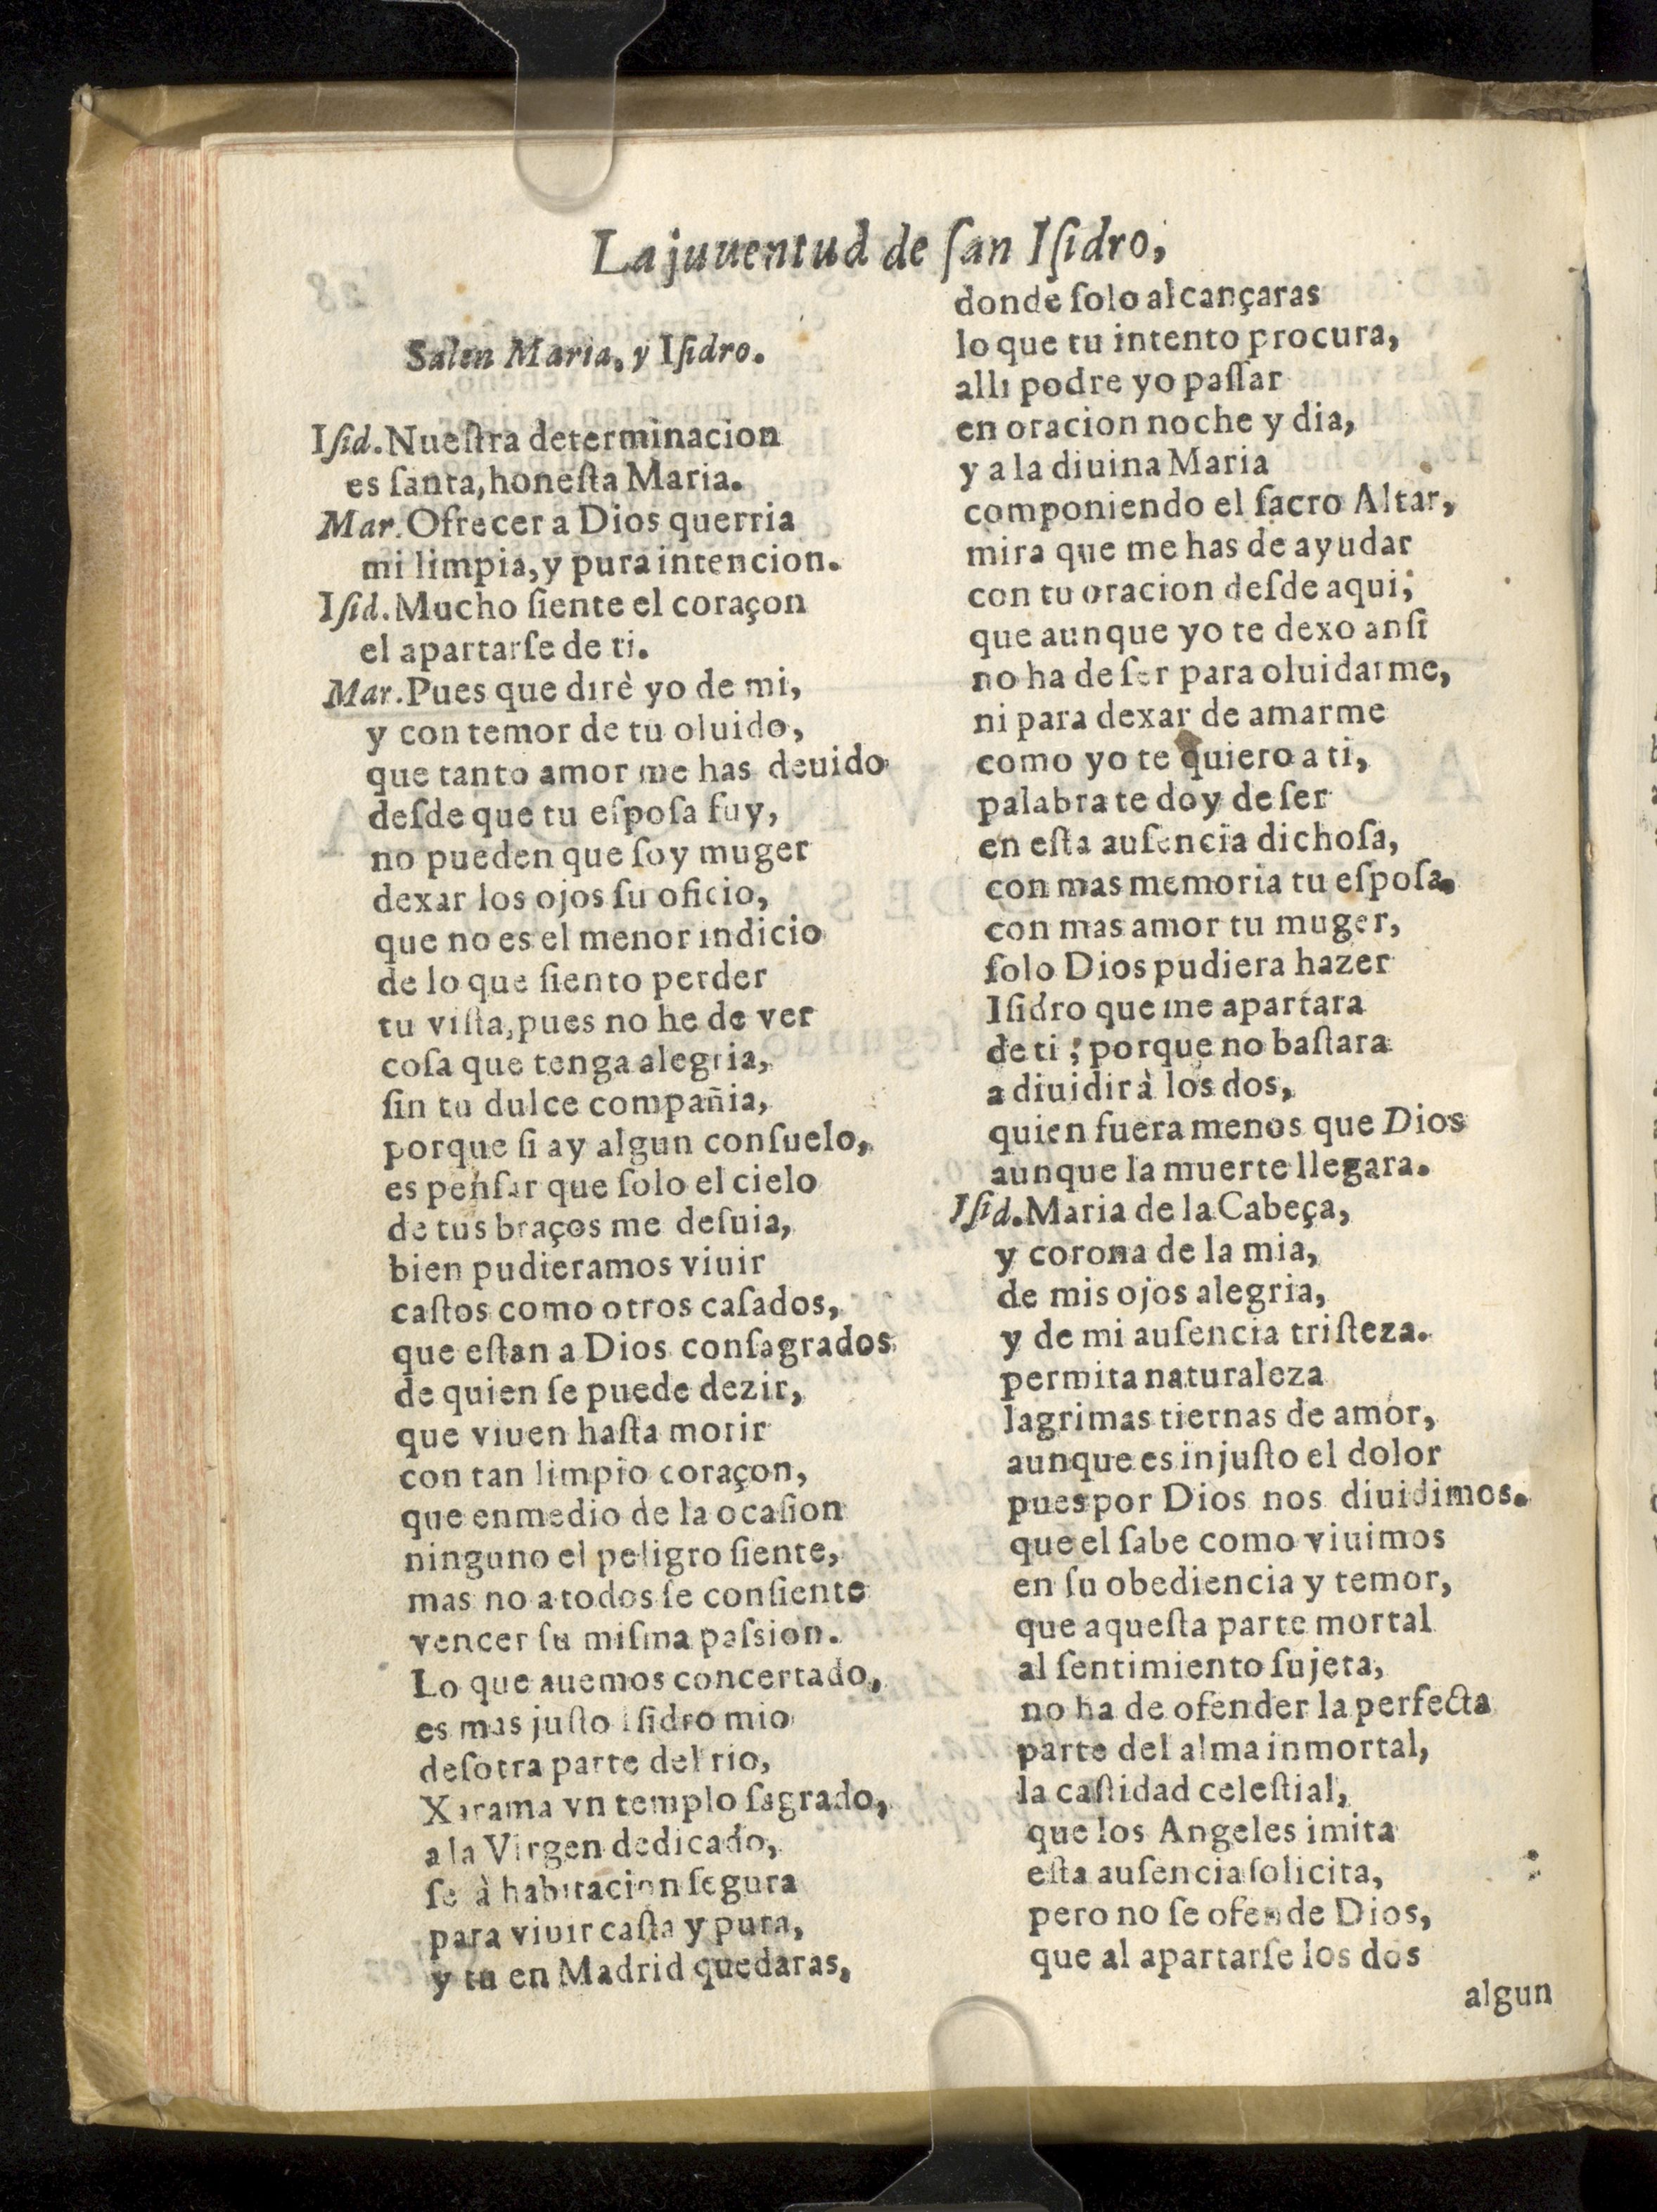 La juuentud de ſan Iſidro,
Salen Maria, y Iſidro.
Iſid. Nueſtra determinacion
es ſanta, honeſta Maria.
Mar. Ofrecer a Dios querria
mi limpia, y pura intencion.
Iſid. Mucho ſiente el coraçon
el apartarſe de ti.
Mar. Pues que dirè yo de mi,
y con temor de tu oluido,
que tanto amor me has deuido
deſde que tu eſpoſa fuy,
no pueden que ſoy muger
dexar los ojos ſu oficio,
que no es el menor indicio
de lo que ſiento perder
tu viſta, pues no he de ver
coſa que tenga alegria,
ſin tu dulce compañia,
porque ſi ay algun conſuelo,
es penſar que ſolo el cielo
de tus braços me deſuia,
bien pudieramos viuir
caſtos como otros caſados,
que eſtan a Dios conſagrados
de quien ſe puede dezir,
que viuen haſta morir
con tan limpio coraçon,
que enmedio de la ocaſion
ninguno el peligro ſiente,
mas no a todos ſe conſiente
vencer ſu miſma paſsion.
Lo que auemos concertado,
es mas juſto Iſidro mio
deſotra parte del rio,
Xarama vn templo ſagrado,
a la Virgen dedicado,
ſe à habitacion ſegura
para viuir caſta y pura,
y tu en Madrid quedaras,
donde ſolo alcançaras
lo que tu intento procura,
alli podre yo paſſar
en oracion noche y dia,
y a la diuina Maria
componiendo el ſacro Altar,
mira que me has de ayudar
con tu oracion deſde aqui;
que aunque yo te dexo anſi
no ha de ſer para oluidarme,
ni para dexar de amarme
como yo te quiero a ti,
palabra te doy de ſer
en eſta auſencia dichoſa,
con mas memoria tu eſpoſa.
con mas amor tu muger,
ſolo Dios pudiera hazer
Iſidro que me apartara
de ti; porque no baſtara
a diuidir à los dos,
quien fuera menos que Dios
aunque la muerte llegara.
Iſid. Maria de la Cabeça,
y corona de la mia,
de mis ojos alegria,
y de mi auſencia triſteza.
permita naturaleza
lagrimas tiernas de amor,
aunque es injuſto el dolor
pues por Dios nos diuidimos.
que el ſabe como viuimos
en ſu obediencia y temor,
que aqueſta parte mortal
al ſentimiento ſujeta,
no ha de ofender la perfecta
parte del alma inmortal,
la caſtidad celeſtial,
que los Angeles imita
eſta auſencia ſolicita,
pero no ſe ofende Dios,
que al apartarſe los dos
algun